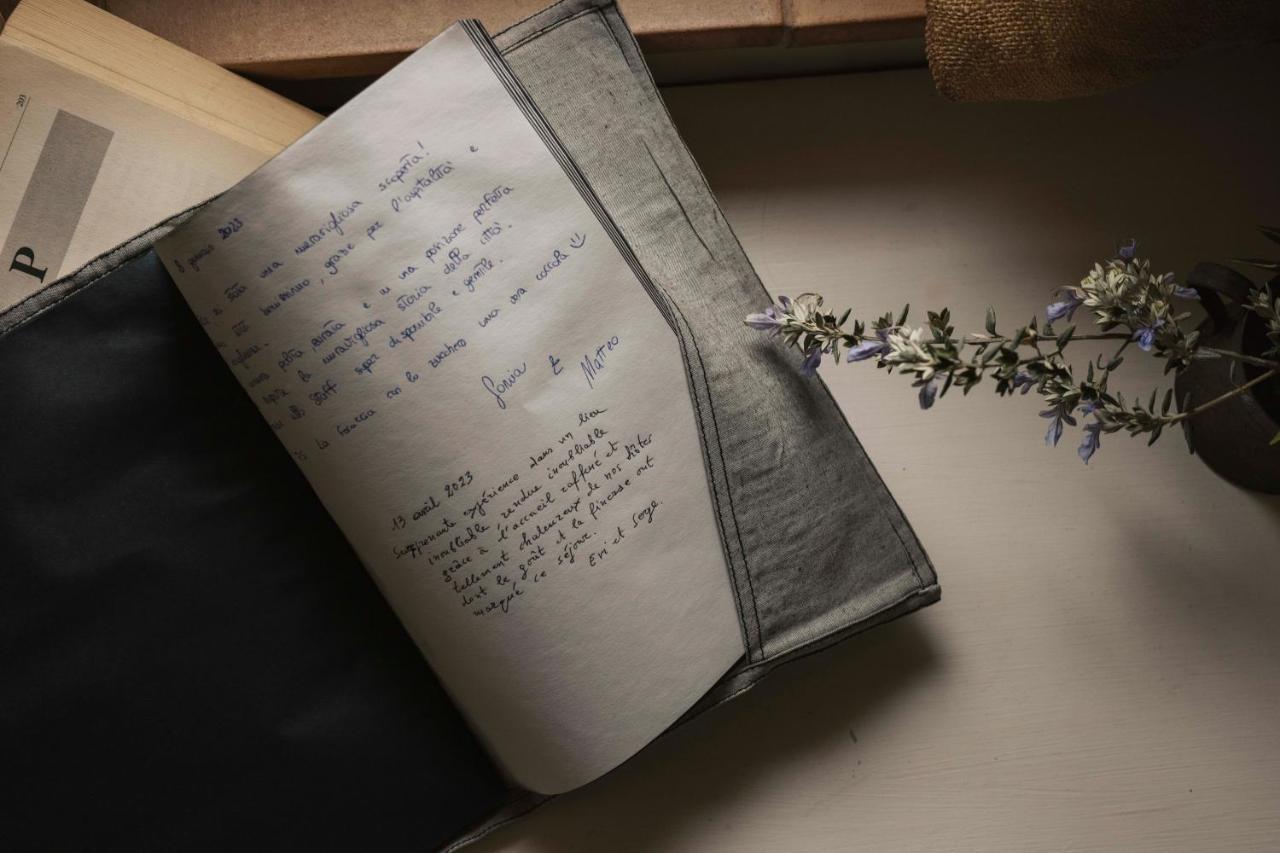 203
P
8 gennaio 2023
è stata una meravigliosa scoperta!
benissimo, grazie per l'ospitalità e
una posizione perfetta
la meravigliosa storia della città.
staff super disponibile e gentile.
La focaccia con lo zucchero una vera coccola
Sonia & Matteo
13 avril 2023
Surprenante expérience dans un lieu
inoubliable rendue inoubliable
grâce à l'accueil raffiné et
tellement chaleureux de nos hôtes
dont le goût et la finesse ont
marqué ce séjour.
Evi et Serge.